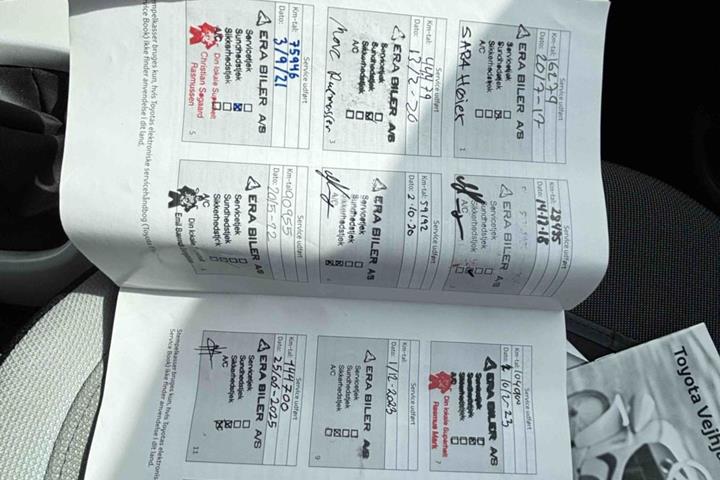 Service udført
Km-tal: 16279
Dato: 20/7-17
ERA BILER A/S
Servicetjek
Sundhedstjek
Sikkerhedstjek
A/C
1
Service udført
Km-tal: 28495
Dato: 14-11-18
ERA BILER A/S
Sundhedstjek
Sikkerhedstjek
A/C
Km-tal: 44479
Dato: 13/2-20
ERA BILER A/S
Servicetjek
Sundhedstjek
Sikkerhedstjek
A/C
3
Service udført
Km-tal: 59192
Dato: 2-10-20
ERA BILER A/S
Servicetjek
Sundhedstjek
Sikkerhedstjek
A/C
Service udført
Km-tal: 75946
Dato: 3/9/21
ERA BILER A/S
Servicetjek
Sundhedstjek
Sikkerhedstjek
A/C
Din lokale Superhelt
Christian Søgaard
Rasmussen
5
Service udført
Km-tal: 90955
Dato: 20/5-22
ERA BILER A/S
Servicetjek
Sundhedstjek
Sikkerhedstjek
A/C
Din lokale
Emil
Stempelkasser bruges kun, hvis Toyotas elektroniske servicehåndbog (Toyota
Service Book) ikke finder anvendelse i dit land.
Service udført
Km-tal:
Dato:
ERA BILER A/S
Servicetjek
Sundhedstjek
Sikkerhedstjek
A/C
Din lokale Superhelt
Rasmus Mark
7
Service udført
Km-tal:
Dato: 1/12-2023
ERA BILER A/S
Servicetjek
Sundhedstjek
Sikkerhedstjek
A/C
9
Service udført
Km-tal: 144700
Dato: 25/02-2025
ERA BILER A/S
Servicetjek
Sundhedstjek
Sikkerhedstjek
A/C
11
Stempelkasser bruges kun, hvis Toyotas elektronisk
Service Book) ikke finder anvendelse i dit land.
Toyota Vejhj